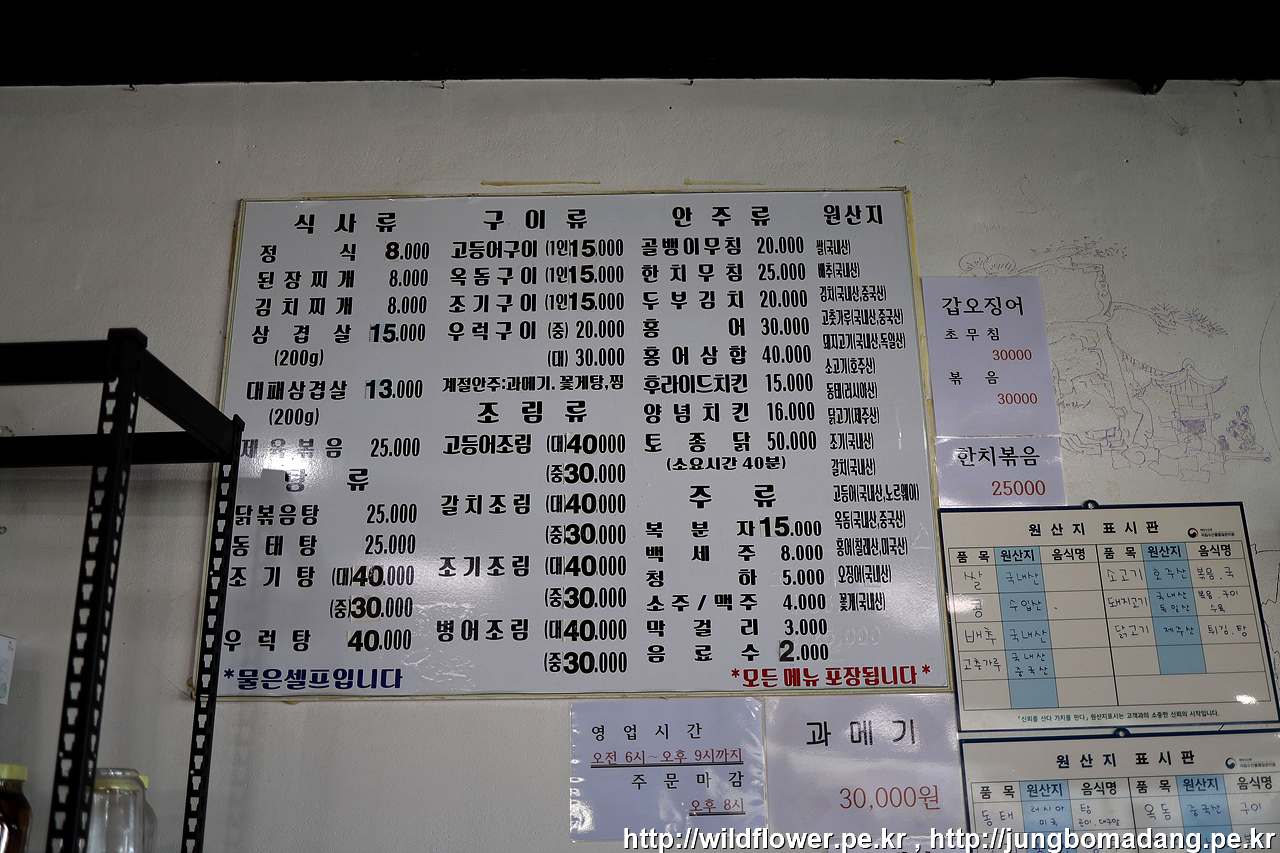 식 사 류
정 식 8.000
된 장 찌 개 8.000
김 치 찌 개 8.000
삼 겹 살 15.000
(200g)
대패삼겹살 13.000
(200g)
제 육 볶 음 25.000
탕 류
닭볶음탕 25.000
동 태 탕 25.000
조 기 탕 (대)40.000
(중)30.000
우 럭 탕 40.000
*물은셀프입니다
구 이 류
고등어구이 (1인)15.000
옥 돔 구 이 (1인)15.000
조 기 구 이 (1인)15.000
우 럭 구 이 (중) 20.000
(대) 30.000
계절안주:과메기. 꽃게탕,찜
조 림 류
고등어조림 (대)40.000
(중)30.000
갈 치 조 림 (대)40.000
(중)30.000
조 기 조 림 (대)40.000
(중)30.000
병 어 조 림 (대)40.000
(중)30.000
안 주 류
골뱅이무침 20.000
한 치 무 침 25.000
두 부 김 치 20.000
홍 어 30.000
홍 어 삼 합 40.000
후라이드치킨 15.000
양 념 치 킨 16.000
토 종 닭 50.000
(소요시간 40분)
주 류
복 분 자 15.000
백 세 주 8.000
청 하 5.000
소 주 / 맥 주 4.000
막 걸 리 3.000
음 료 수 2.000
*모든 메뉴 포장됩니다*
원산지
쌀(국내산)
배추(국내산)
김치(국내산,중국산)
고춧가루(국내산,중국산)
돼지고기(국내산,독일산)
소고기(호주산)
동태(러시아산)
닭고기(제주산)
조기(국내산)
갈치(국내산)
고등어(국내산,노르웨이)
옥돔(국내산,중국산)
홍어(칠레산,미국산)
오징어(국내산)
꽃게(국내산)
갑오징어
초 무 침
30000
볶 음
30000
한치볶음
25000
원 산 지 표 시 판
품 목 원산지 음식명 품 목 원산지 음식명
쌀 국내산 소고기 호주산 볶음.국
콩 수입산 돼지고기 국내산 독일산 볶음.구이 수육
배추 국내산 닭고기 제주산 튀김.탕
고춧가루 국내산 중국산
「신뢰를 산다 가치를 판다」 원산지표시는 고객과의 소중한 신뢰의 시작입니다.
원 산 지 표 시 판
품 목 원산지 음식명 품 목 원산지 음식명
동태 러시아 미국 탕 옥돔 중국산 구이
영 업 시 간
오전 6시~오후 9시까지
주 문 마 감
오후 8시
과 메 기
30,000원
http://wildflower.pe.kr , http://jungbomadang.pe.kr